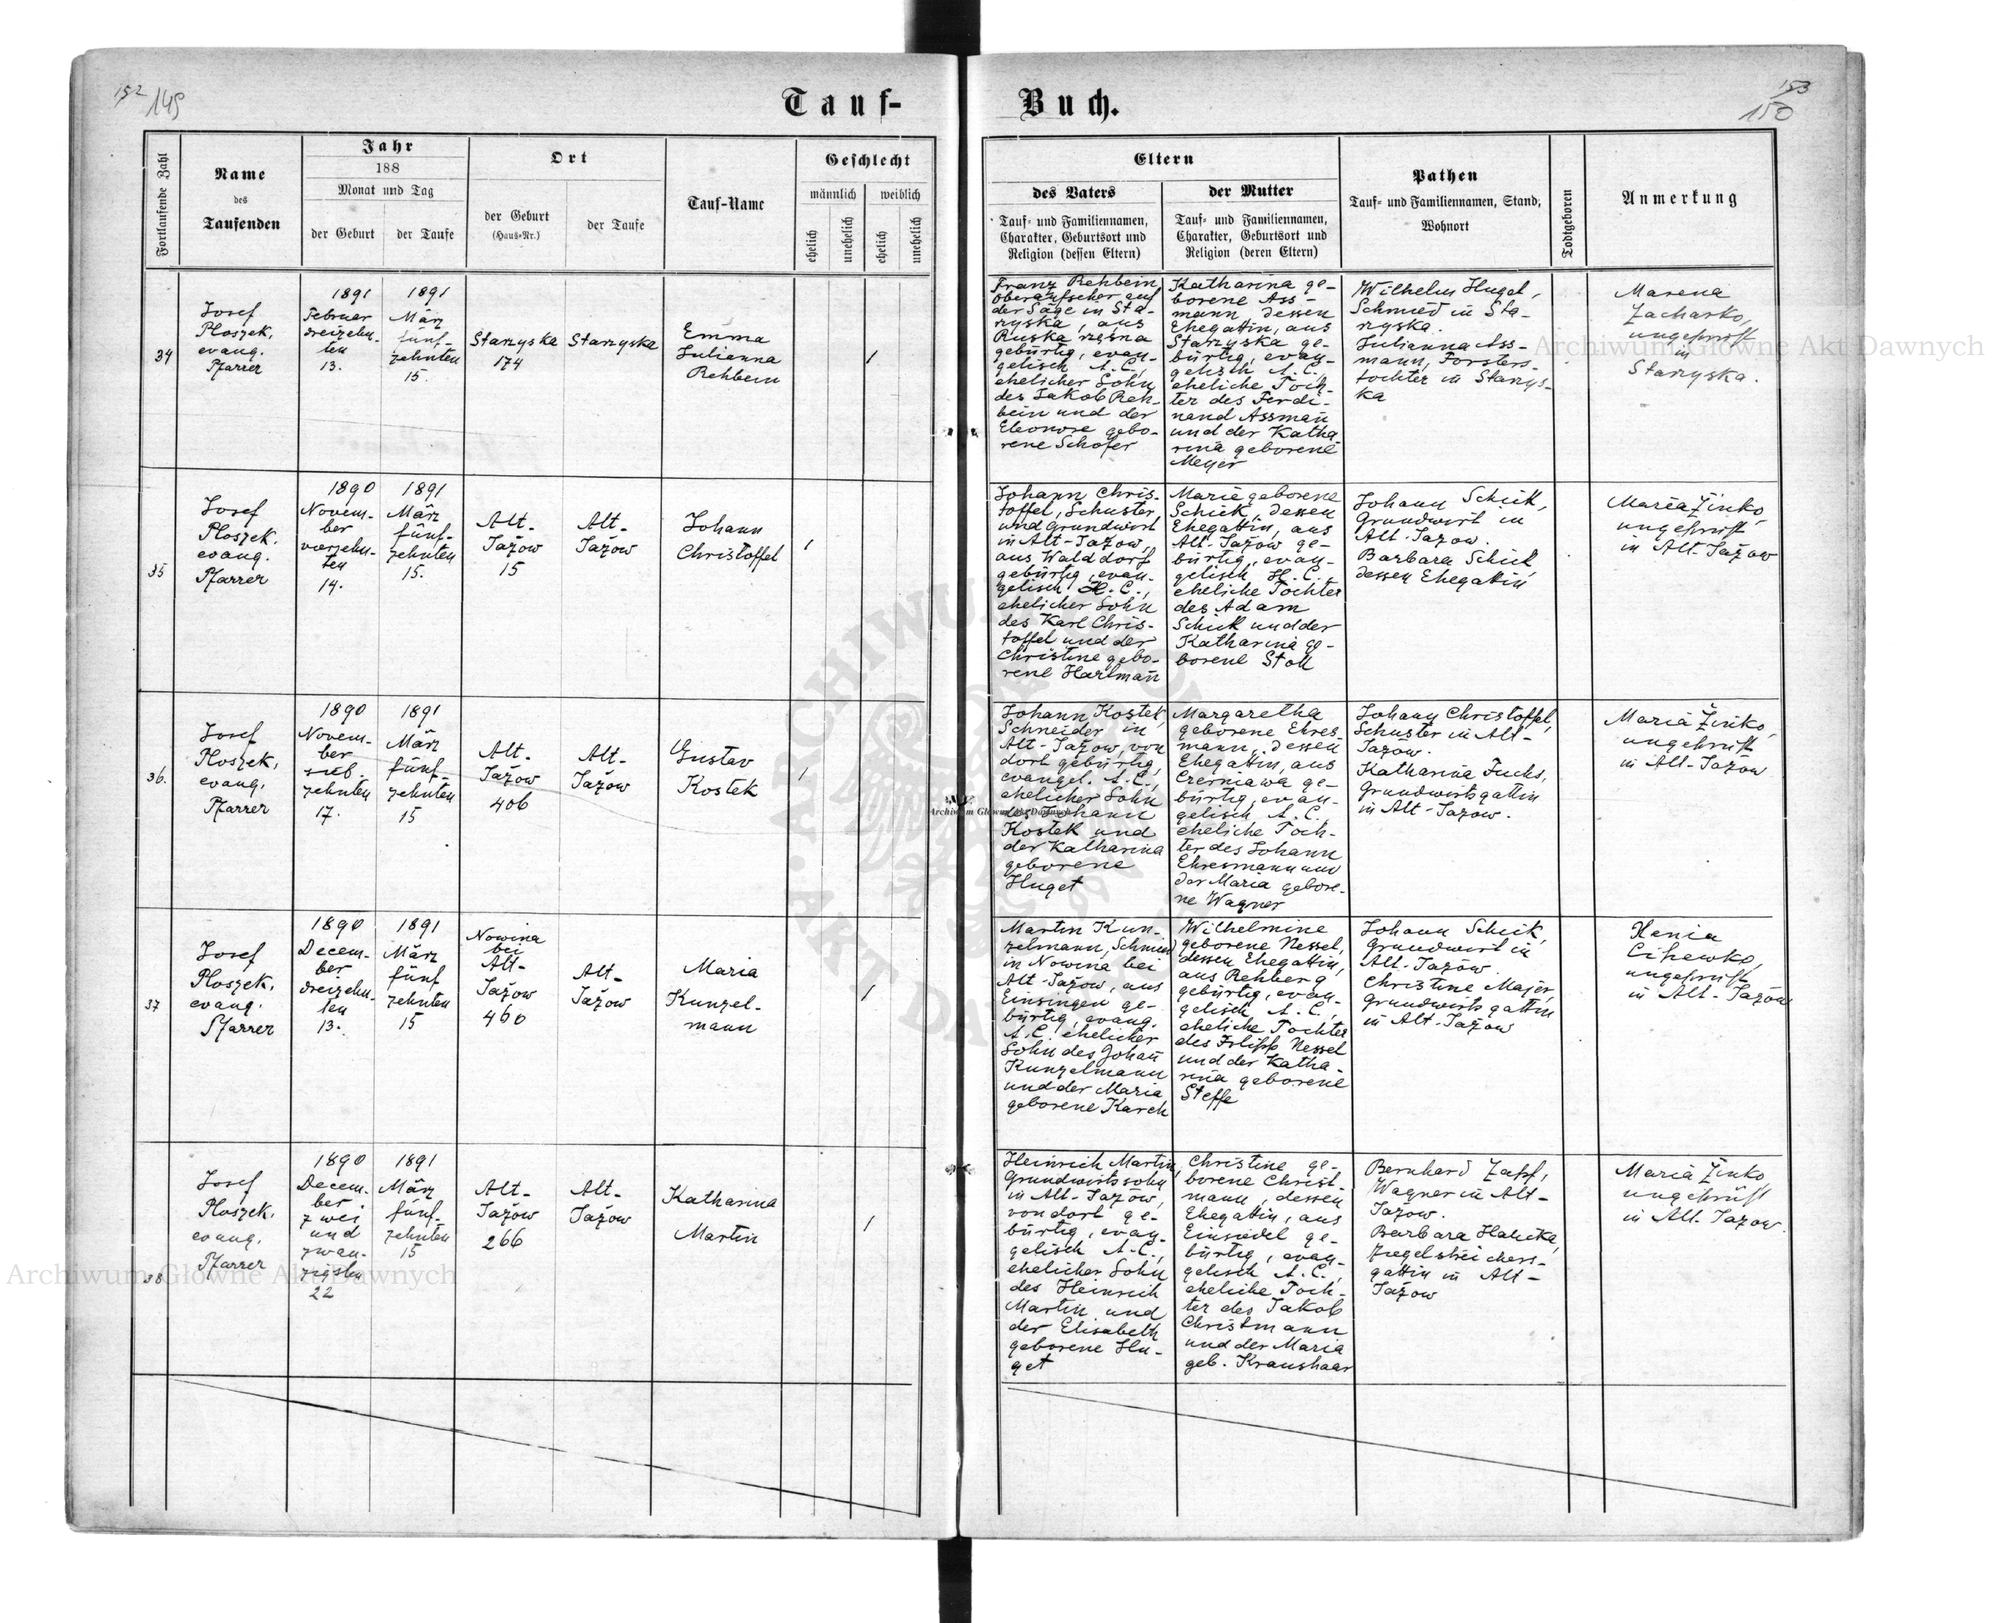 152 149
Tauf-
Buch.
153
150
Fortlaufende Zahl
Name
des
Taufenden
Jahr
188
Monat und Tag
der Geburt
der Taufe
Ort
der Geburt
(Haus-Nr.)
der Taufe
Tauf-Name
Geschlecht
männlich
weiblich
ehelich
unehelich
ehelich
unehelich
Eltern
des Vaters
Tauf- und Familiennamen,
Charakter, Geburtsort und
Religion (dessen Eltern)
der Mutter
Tauf- und Familiennamen,
Charakter, Geburtsort und
Religion (deren Eltern)
Pathen
Tauf- und Familiennamen, Stand,
Wohnort
Todtgeboren
Anmerkung
34
Josef
Ploszek,
evang.
Pfarrer
1891
Februar
dreizehn-
ten
13.
1891
März
fünf-
zehnten
15.
Starzyska
174
Starzyska
Emma
Julianna
Rehbein
1
Franz Rehbein,
Oberaufseher auf
der Säge in Sta-
rzyska, aus
Ruska rzęsna
gebürtig, evan-
gelisch A.C.,
ehelicher Sohn
des Jakob Reh-
bein und der
Eleonore gebo-
rene Schofer
Katharina ge-
borene Ass-
mann dessen
Ehegattin, aus
Starzyska ge-
bürtig, evan-
gelisch A.C.,
eheliche Toch-
ter des Ferdi-
nand Assmañ
und der Katha-
rina geborene
Meyer
Wilhelm Hugel,
Schmied in Sta-
rzyska.
Julianna Ass-
mann, Försters-
tochter in Starzys-
ka
Marena
Zacharko,
ungeprüft
in
Starzyska.
35
Josef
Ploszek.
evang.
Pfarrer
1890
Novem-
ber
vierzehn-
ten
14.
1891
März
fünf-
zehnten
15.
Alt-
Jażow
15
Alt-
Jażow
Johann
Christoffel
1
Johann Chris-
toffel, Schuster
und Grundwirt
in Alt-Jażow,
aus Walddorf
gebürtig, evan-
gelisch H.C.,
ehelicher Sohn
des Karl Chris-
toffel und der
Christine gebo-
rene Hartmañ
Maria geborene
Schick, dessen
Ehegattin, aus
Alt-Jażow ge-
bürtig, evan-
gelisch H.C.,
eheliche Tochter
des Adam
Schick und der
Katharina ge-
borene Stoll
Johann Schick,
Grundwirt in
Alt-Jazow.
Barbara Schick
dessen Ehegattin
Maria Żinko,
ungeprüft
in Alt-Jażow
36.
Josef
Ploszek,
evang.
Pfarrer
1890
Novem-
ber
sieb-
zehnten
17.
1891
März
fünf-
zehnten
15
Alt-
Jażow
406
Alt-
Jażow
Gustav
Kostek
1
Johann Kostek,
Schneider in
Alt-Jażow, von
dort gebürtig,
evangel. A.C.,
ehelicher Sohn
des Johann
Kostek und
der Katharina
geborene
Huget
Margaretha
geborene Ehres-
mann, dessen
Ehegattin, aus
Czerniawa ge-
bürtig, evan-
gelisch A.C.,
eheliche Toch-
ter des Johann
Ehresmann und
der Maria gebore-
ne Wagner
Johann Christoffel,
Schuster in Alt-
Jażow.
Katharina Fuchs,
Grundwirtsgattin
in Alt-Jazow.
Maria Żinko,
ungeprüft
in Alt-Jażow
37
Josef
Ploszek,
evang.
Pfarrer
1890
Decem-
ber
dreizehn-
ten
13.
1891
März
fünf
zehnten
15
Nowina
bei
Alt-
Jażow
460
Alt-
Jażow
Maria
Kunzel-
mann
1
Martin Kun-
zelmann, Schmied
in Nowina bei
Alt-Jażow, aus
Einsingen ge-
bürtig, evang.
A.C. ehelicher
Sohn des Johañ
Kunzelmann
und der Maria
geborene Karch
Wilhelmine
geborene Nessel,
dessen Ehegattin,
aus Rehberg
gebürtig, evan-
gelisch A.C.,
eheliche Tochter
des Filipp Nessel
und der Katha-
rina geborene
Steffe
Johann Schick,
Grundwirt in
Alt-Jażow.
Christine Majer,
Grundwirtsgattin
in Alt-Jażow
Xenia
Cihewko,
ungeprüft
in Alt-Jażow
38.
Josef
Ploszek.
evang.
Pfarrer
1890
Decem-
ber
zwei
und
zwan-
zigsten
22
1891
März
fünf-
zehnten
15
Alt-
Jazow
266
Alt-
Jażow
Katharina
Martin
1
Heinrich Martin,
Grundwirtssohn
in Alt-Jażow,
von dort ge-
bürtig, evan-
gelisch A.C.,
ehelicher Sohn
des Heinrich
Martin und
der Elisabeth
geborene Hu-
get
Christine ge-
borene Christ-
mann, dessen
Ehegattin, aus
Einsiedel ge-
bürtig, evan-
gelisch A.C.,
eheliche Toch-
ter des Jakob
Christmann
und der Maria
geb. Kraushaar
Bernhard Zapf,
Wagner in Alt-
Jażow.
Barbara Halicka,
Ziegelstreichers-
gattin in Alt-
Jażow
Maria Żinko
ungeprüft
in Alt-Jazow.
Archiwum Główne Akt Dawnych
Archiwum Główne Akt Dawnych
Archiwum Główne Akt Dawnych